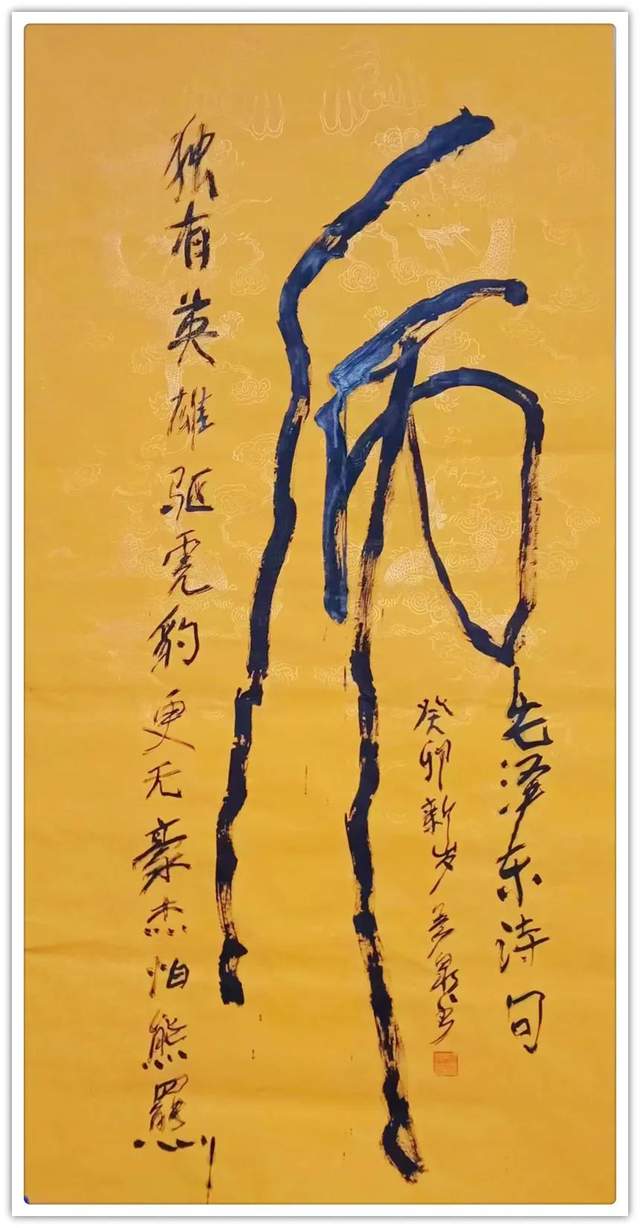 毛泽东诗句
癸卯新岁
独有英雄驱虎豹更无豪杰怕熊罴